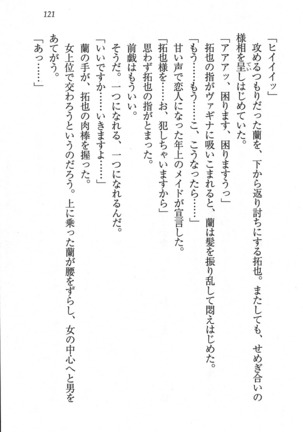 121
「ヒイイイッ」
攻めるつもりだった蘭を、下から返り討ちにする拓也。またしても、せめぎ合いの
様相を呈しはじめていた。
「アアアッ、困ります、困りますうっ」
拓也の指がヴァギナに吸いこまれると、蘭は髪を振り乱して悶えはじめた。
「もう……もう……こ、こうなったら……」
甘い声で恋人になった年上のメイドが宣言した。
「拓也様を……お、犯しちゃいますから」
思わず拓也の指がとまった。
前戯はもういい。
そうだ。一つになれる、一つになれるんだ。
「いいですか……いきますよ……」
蘭の手が、拓也の肉棒を握った。
女上位で交わろうというのだろう。上に乗った蘭が腰をずらし、女の中心へと男を
あてがう。
「あっ……」